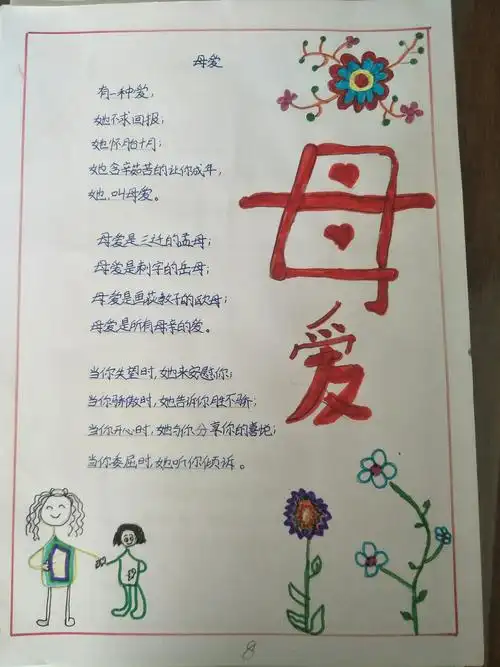 母爱
有一种爱,
她不求回报;
她怀胎十月;
她含辛茹苦的让你成年,
她,叫母爱。
母爱是三迁的孟母;
母爱是刺字的岳母;
母爱是画荻教子的欧母;
母爱是所有母亲的爱。
当你失望时,她来安慰你;
当你骄傲时,她告诉你胜不骄;
当你开心时,她与你分享你的喜悦;
当你委屈时,她听你倾诉。
母
爱
8